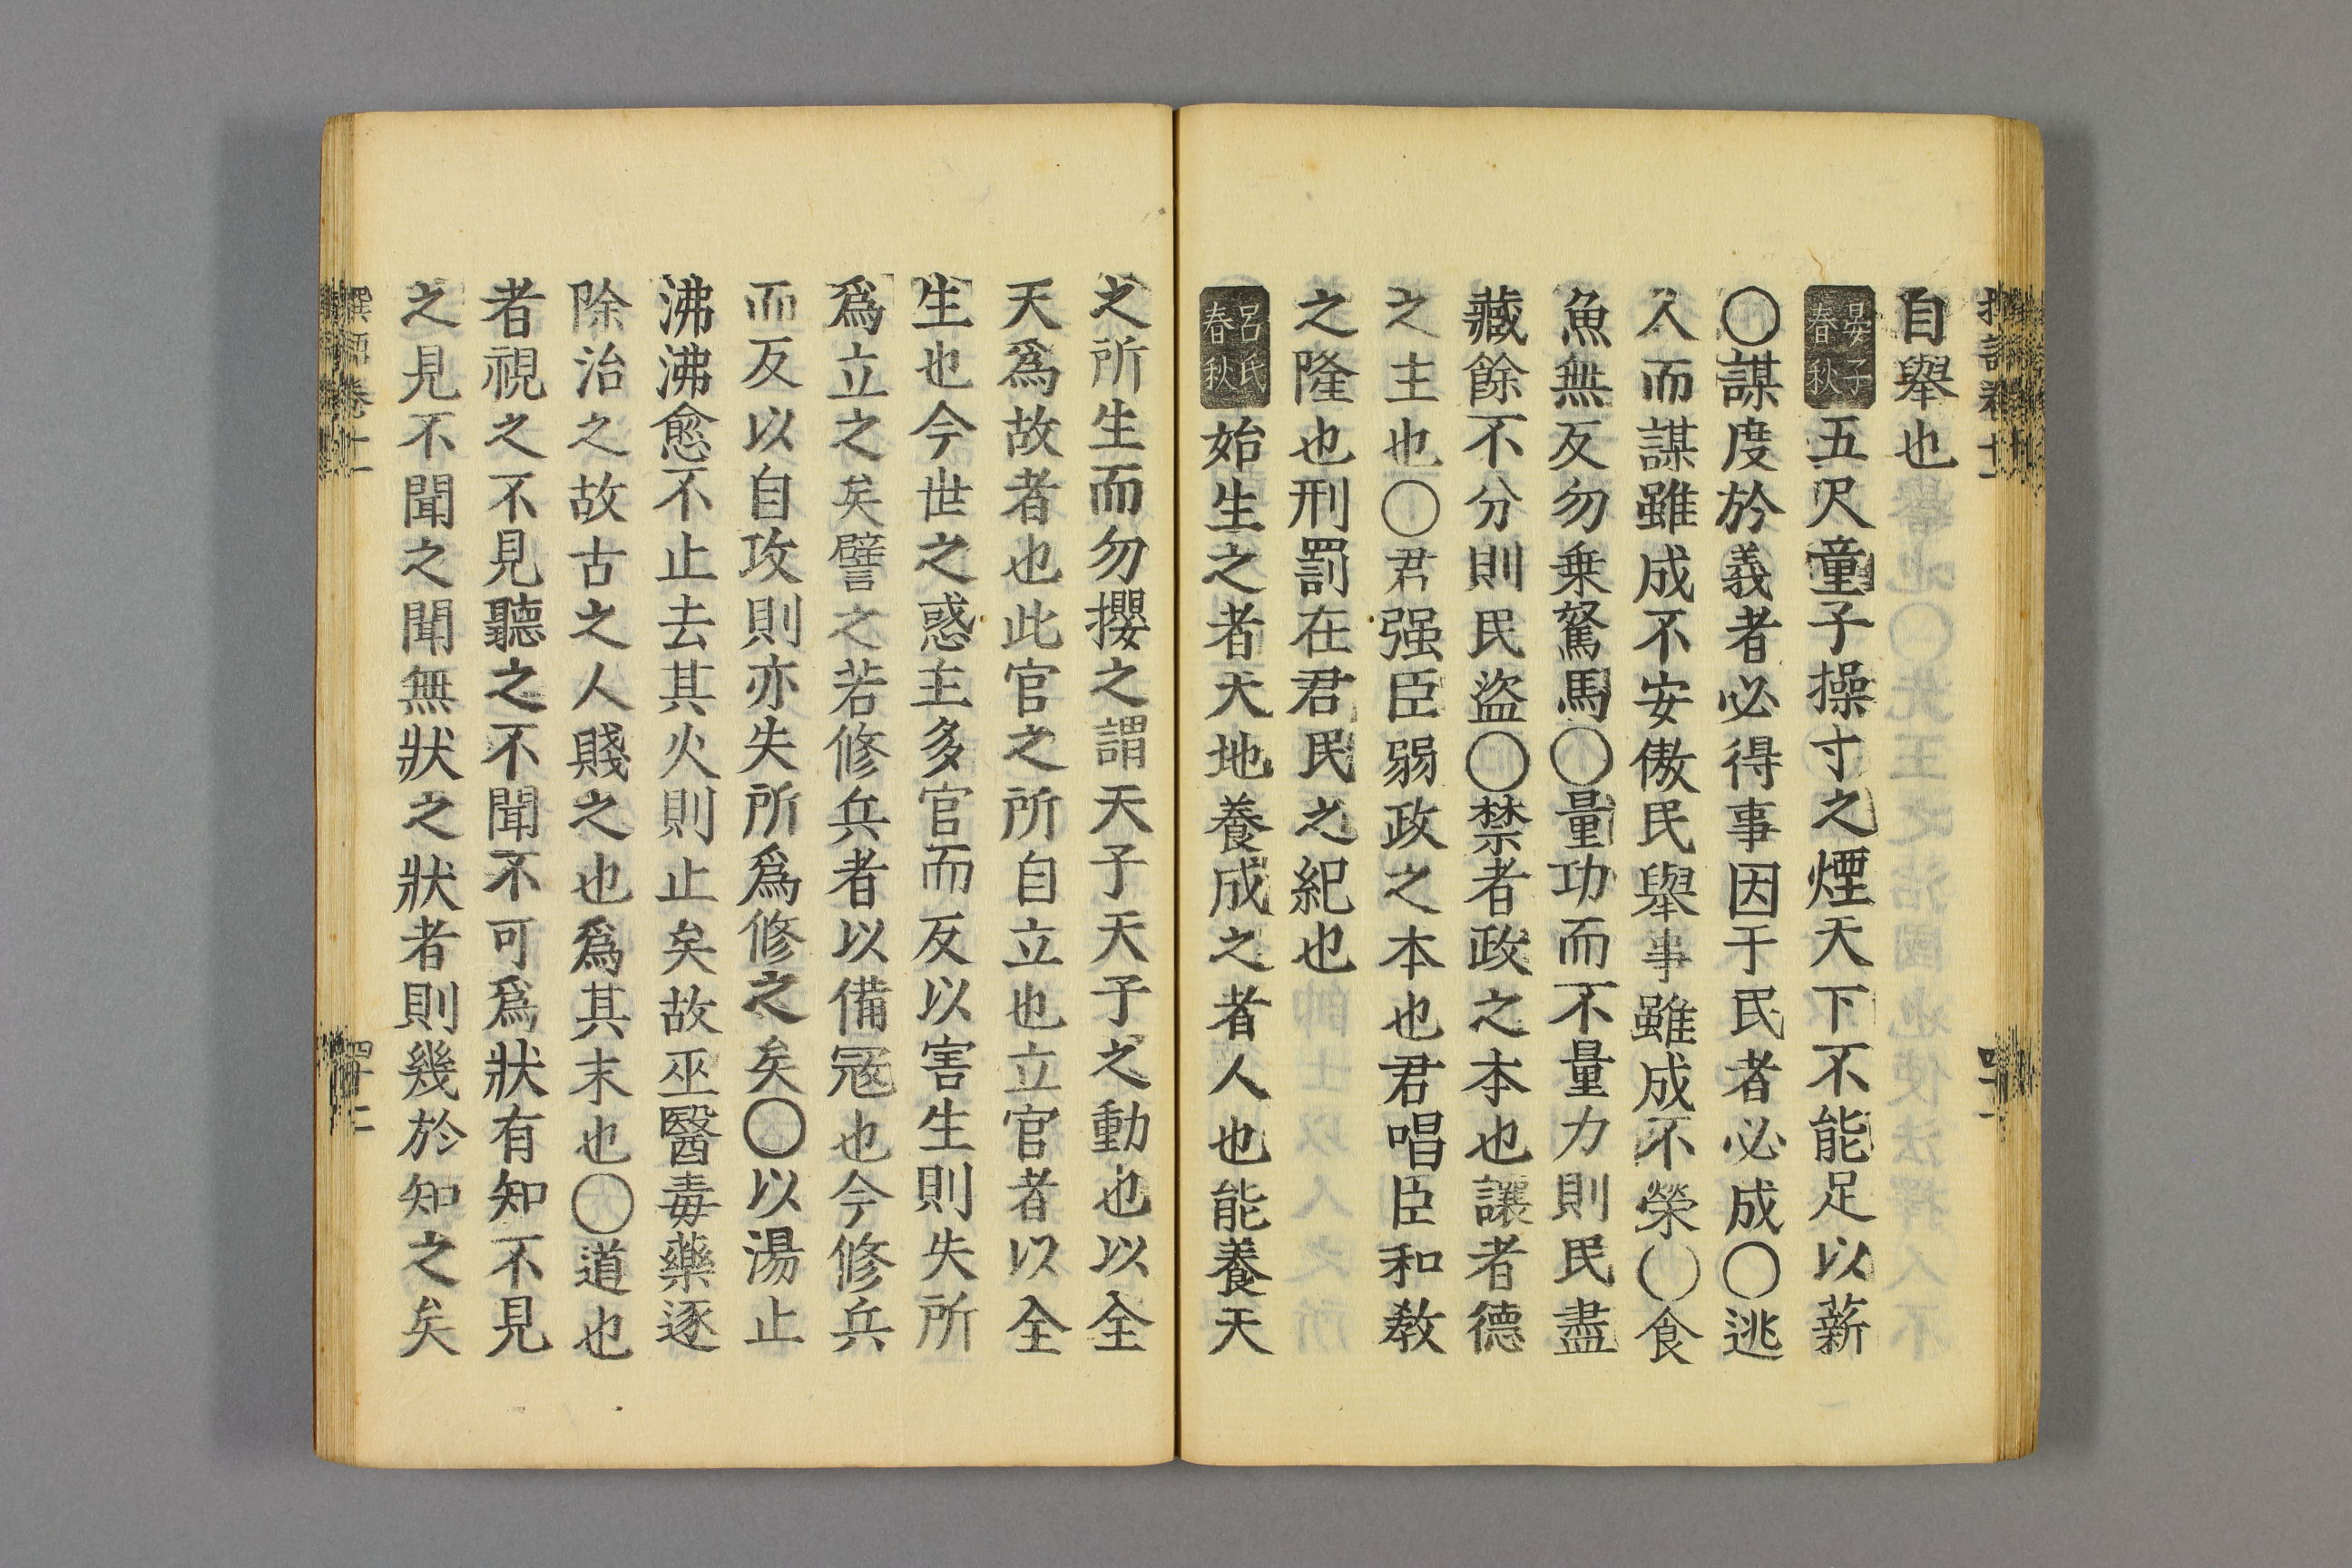 自舉也
晏子春秋 五尺童子操寸之煙天下不能足以薪
〇謀度於義者必得事因于民者必成〇逃
人而謀雖成不安傲民舉事雖成不榮〇食
魚無反勿乗駑馬〇量功而不量力則民盡
藏餘不分則民盜〇禁者政之本也讓者德
之主也〇君强臣弱政之本也君唱臣和敎
之隆也刑罰在君民之紀也
呂氏春秋 始生之者天地養成之者人也能養天
之所生而勿攖之謂天子天子之動也以全
天爲故者也此官之所自立也立官者以全
生也今世之惑主多官而反以害生則失所
爲立之矣譬之若修兵者以備冦也今修兵
而反以自攻則亦失所爲修之矣〇以湯止
沸沸愈不止去其火則止矣故巫醫毒藥逐
除治之故古之人賤之也爲其末也〇道也
者視之不見聽之不聞不可爲狀有知不見
之見不聞之聞無狀之狀者則幾於知之矣
卷十一
四十二